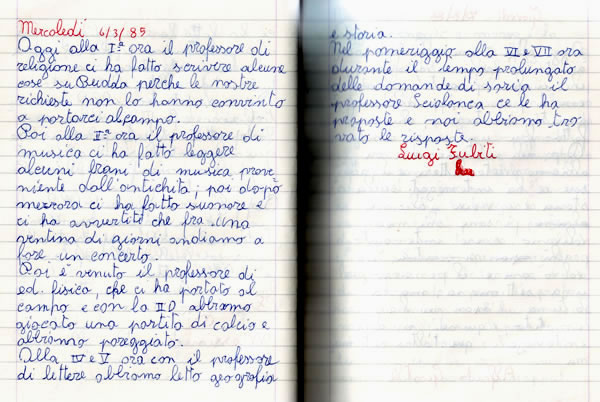 Mercoledì 6/3/85
Oggi alla Iª ora il professore di
religione ci ha fatto scrivere alcune
cose su Budda perche le nostre
richieste non lo hanno convinto
a portarci al campo.
Poi alla IIª ora il professore di
musica ci ha fatto leggere
alcuni frani di musica prove=
niente dall'antichità, poi dopo
mezzora ci ha fatto suonare e
ci ha avvertiti che fra una
ventina di giorni andiamo a
fare un concerto.
Poi è venuto il professore di
ed. fisica, che ci ha portato al
campo e con la II D abbiamo
giocato una partita di calcio e
abbiamo pareggiato.
Alla IV e V ora con il professore
di lettere abbiamo letto geografia
e storia.
Nel pomeriggio alla VI e VII ora
durante il tempo prolungato
delle domande di soria il
professore Sciolonca ce le ha
proposte e noi abbiamo tro
vato le risposte.
Luigi Fubiti